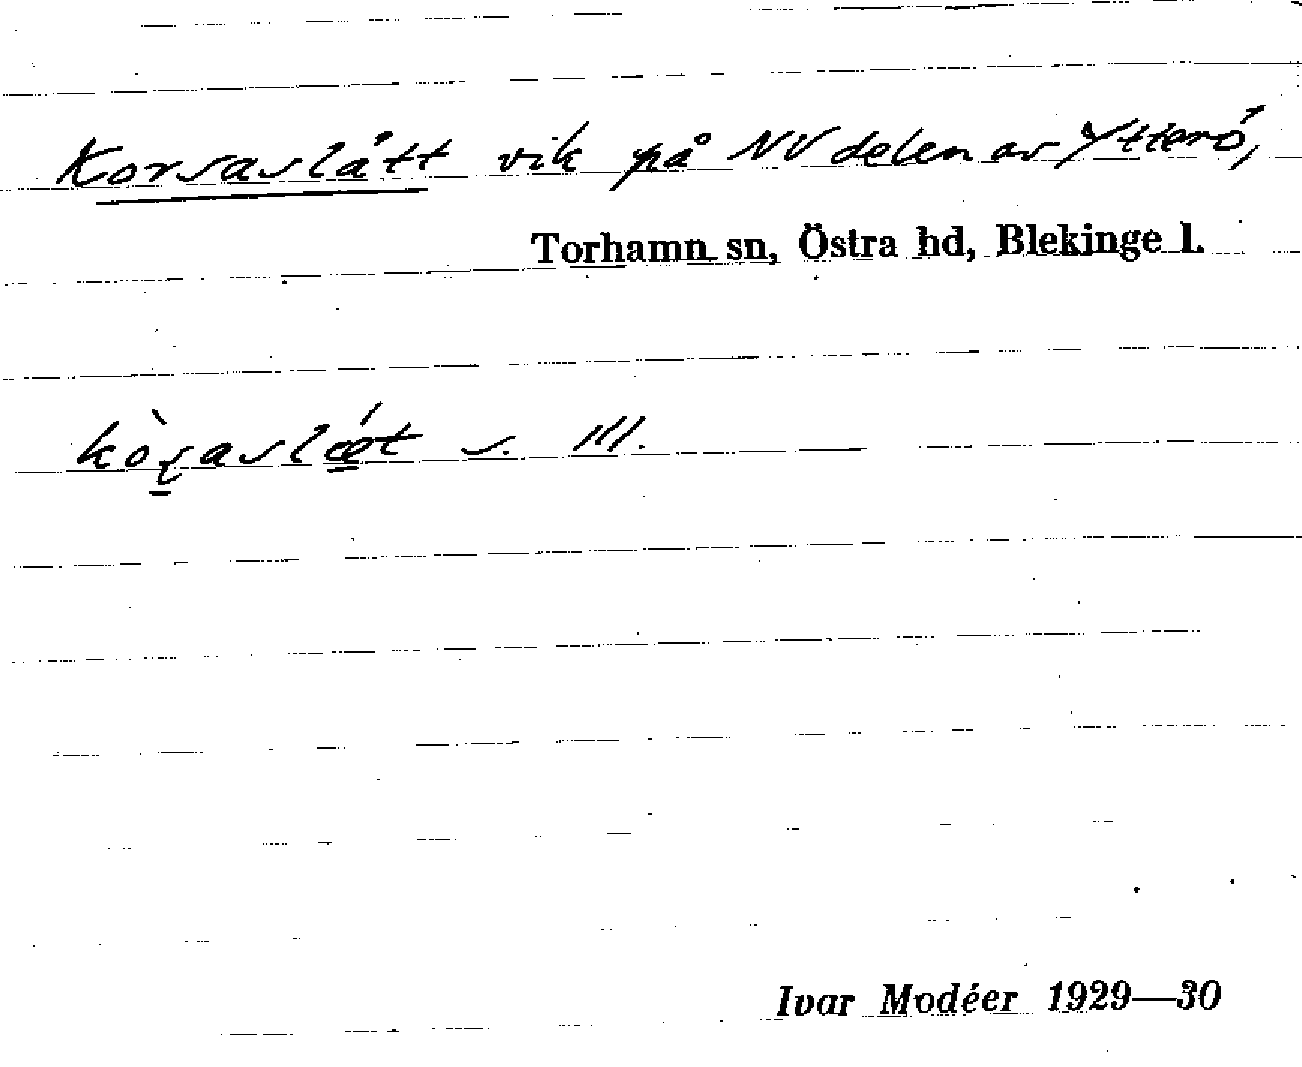 Korsaslått vik på NV delen av Ytterö,
Torhamn sn, Östra hd, Blekinge l.
s. III.
Ivar Modéer 1929—30